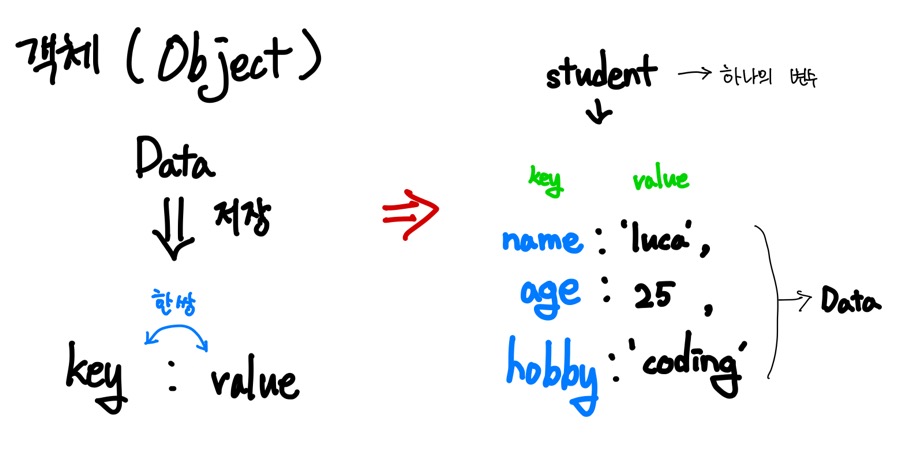 객체 (Object)
Data
저장
한쌍
key : value
student → 하나의 변수
key value
name : 'luca',
age : 25 ,
hobby : 'coding'
Data